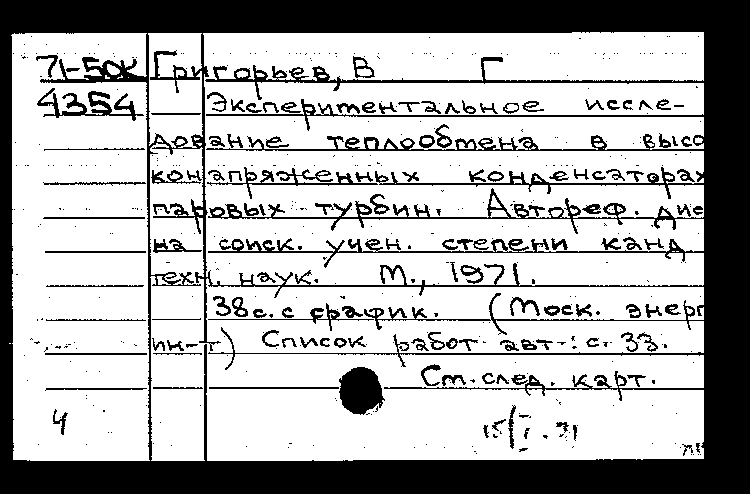 71-50к Григорьев, В Г
4354 Экспериментальное иссле-
дование теплообмена в высо
конапряженных конденсаторах
паровых турбин. Автореф. дис
на соиск. учен. степени канд
техн. наук. М., 1971.
38с. с график. (Моск. энерг
ин-т) Список работ авт.: с. 33.
См. след. карт.
4